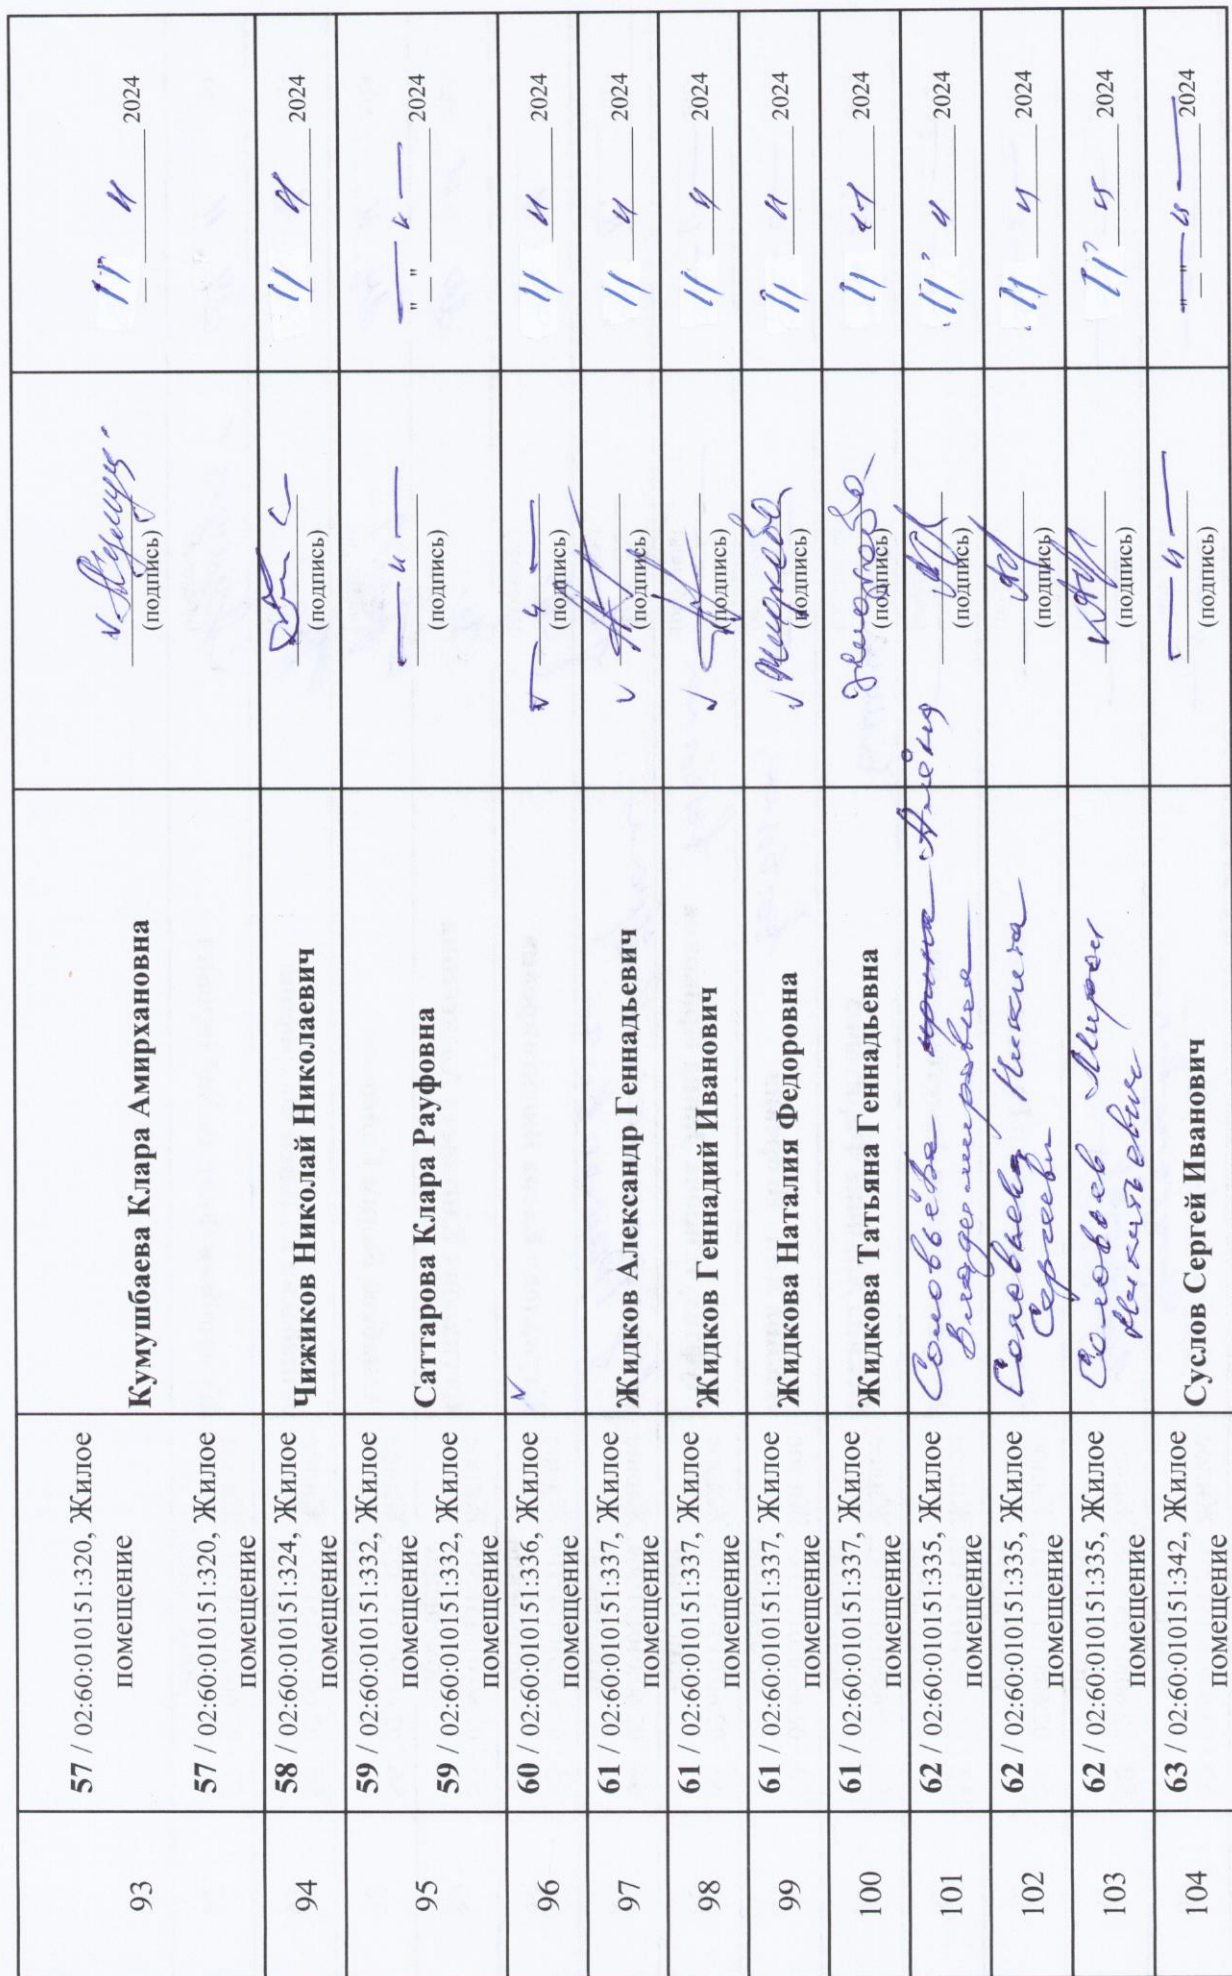 93
57 / 02:60:010151:320, Жилое
помещение
57 / 02:60:010151:320, Жилое
помещение
Кумушбаева Клара Амирхановна
(подпись)
11 11 2024
94
58 / 02:60:010151:324, Жилое
помещение
Чижиков Николай Николаевич
(подпись)
11 11 2024
95
59 / 02:60:010151:332, Жилое
помещение
59 / 02:60:010151:332, Жилое
помещение
Саттарова Клара Рауфовна
— и —
(подпись)
— и —
" " 2024
96
60 / 02:60:010151:336, Жилое
помещение
— и —
(подпись)
11 11 2024
97
61 / 02:60:010151:337, Жилое
помещение
Жидков Александр Геннадьевич
(подпись)
11 11 2024
98
61 / 02:60:010151:337, Жилое
помещение
Жидков Геннадий Иванович
(подпись)
11 11 2024
99
61 / 02:60:010151:337, Жилое
помещение
Жидкова Наталия Федоровна
Жидкова
(подпись)
11 11 2024
100
61 / 02:60:010151:337, Жилое
помещение
Жидкова Татьяна Геннадьевна
Жидкова
(подпись)
11 11 2024
101
62 / 02:60:010151:335, Жилое
помещение
Соловьёва Алёна
Владимировна
(подпись)
11 11 2024
102
62 / 02:60:010151:335, Жилое
помещение
Соловьева Никита
Сергеевич
(подпись)
11 11 2024
103
62 / 02:60:010151:335, Жилое
помещение
Соловьев Мирон
Никитьевич
(подпись)
11 11 2024
104
63 / 02:60:010151:342, Жилое
помещение
Суслов Сергей Иванович
— и —
(подпись)
" — и —
" 2024